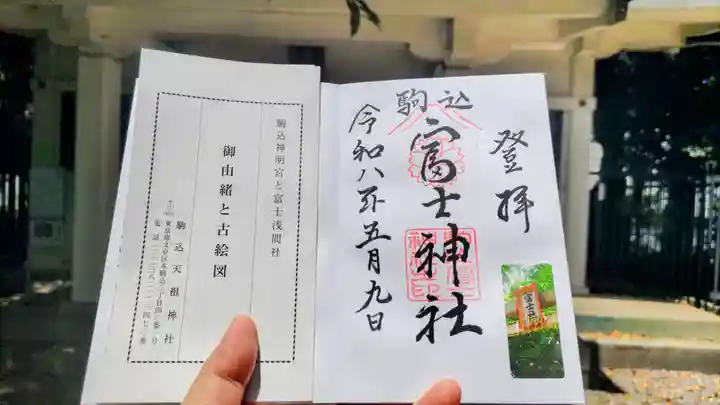 駒込神明宮と富士浅間社
御由緒と古絵図
駒込天祖神社
登拝
駒込
富士神社
令和八年五月九日